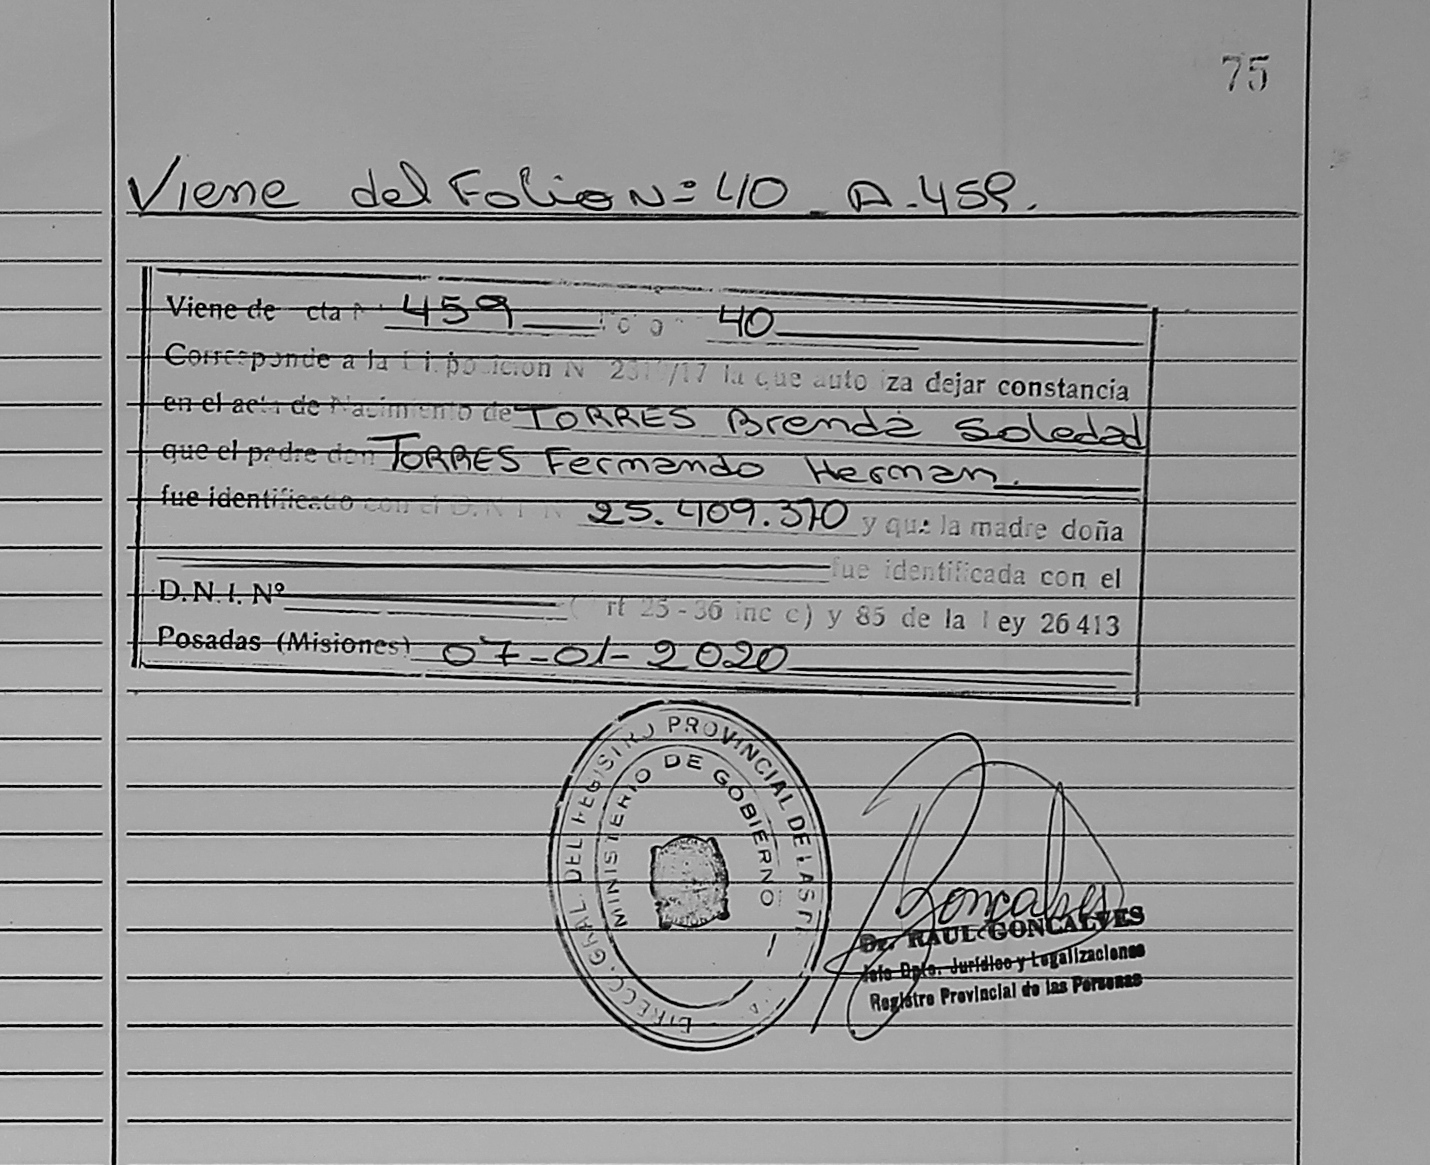 75
Viene del Folio Nº 40 - A. 459.
Viene de cta N 459 40
Corresponde a la posicion N /17 la que auto iza dejar constancia
en el acta de Nacimiento de TORRES Brenda Soledad
que el padre don TORRES Fernando Hernan.
fue identificado con el D.N.I. N 25.409.370 y que la madre doña
fue identificada con el
D.N.I. Nº ( rt 25-36 inc c) y 85 de la ley 26413
Posadas (Misiones) 07-01-2020
DIRECC. GRAL. DEL REGISTRO PROVINCIAL DE LAS
MINISTERIO DE GOBIERNO
Goncalves
Dr. RAUL GONCALVES
Jefe Dpto. Jurídico y Legalizaciones
Registro Provincial de las Personas